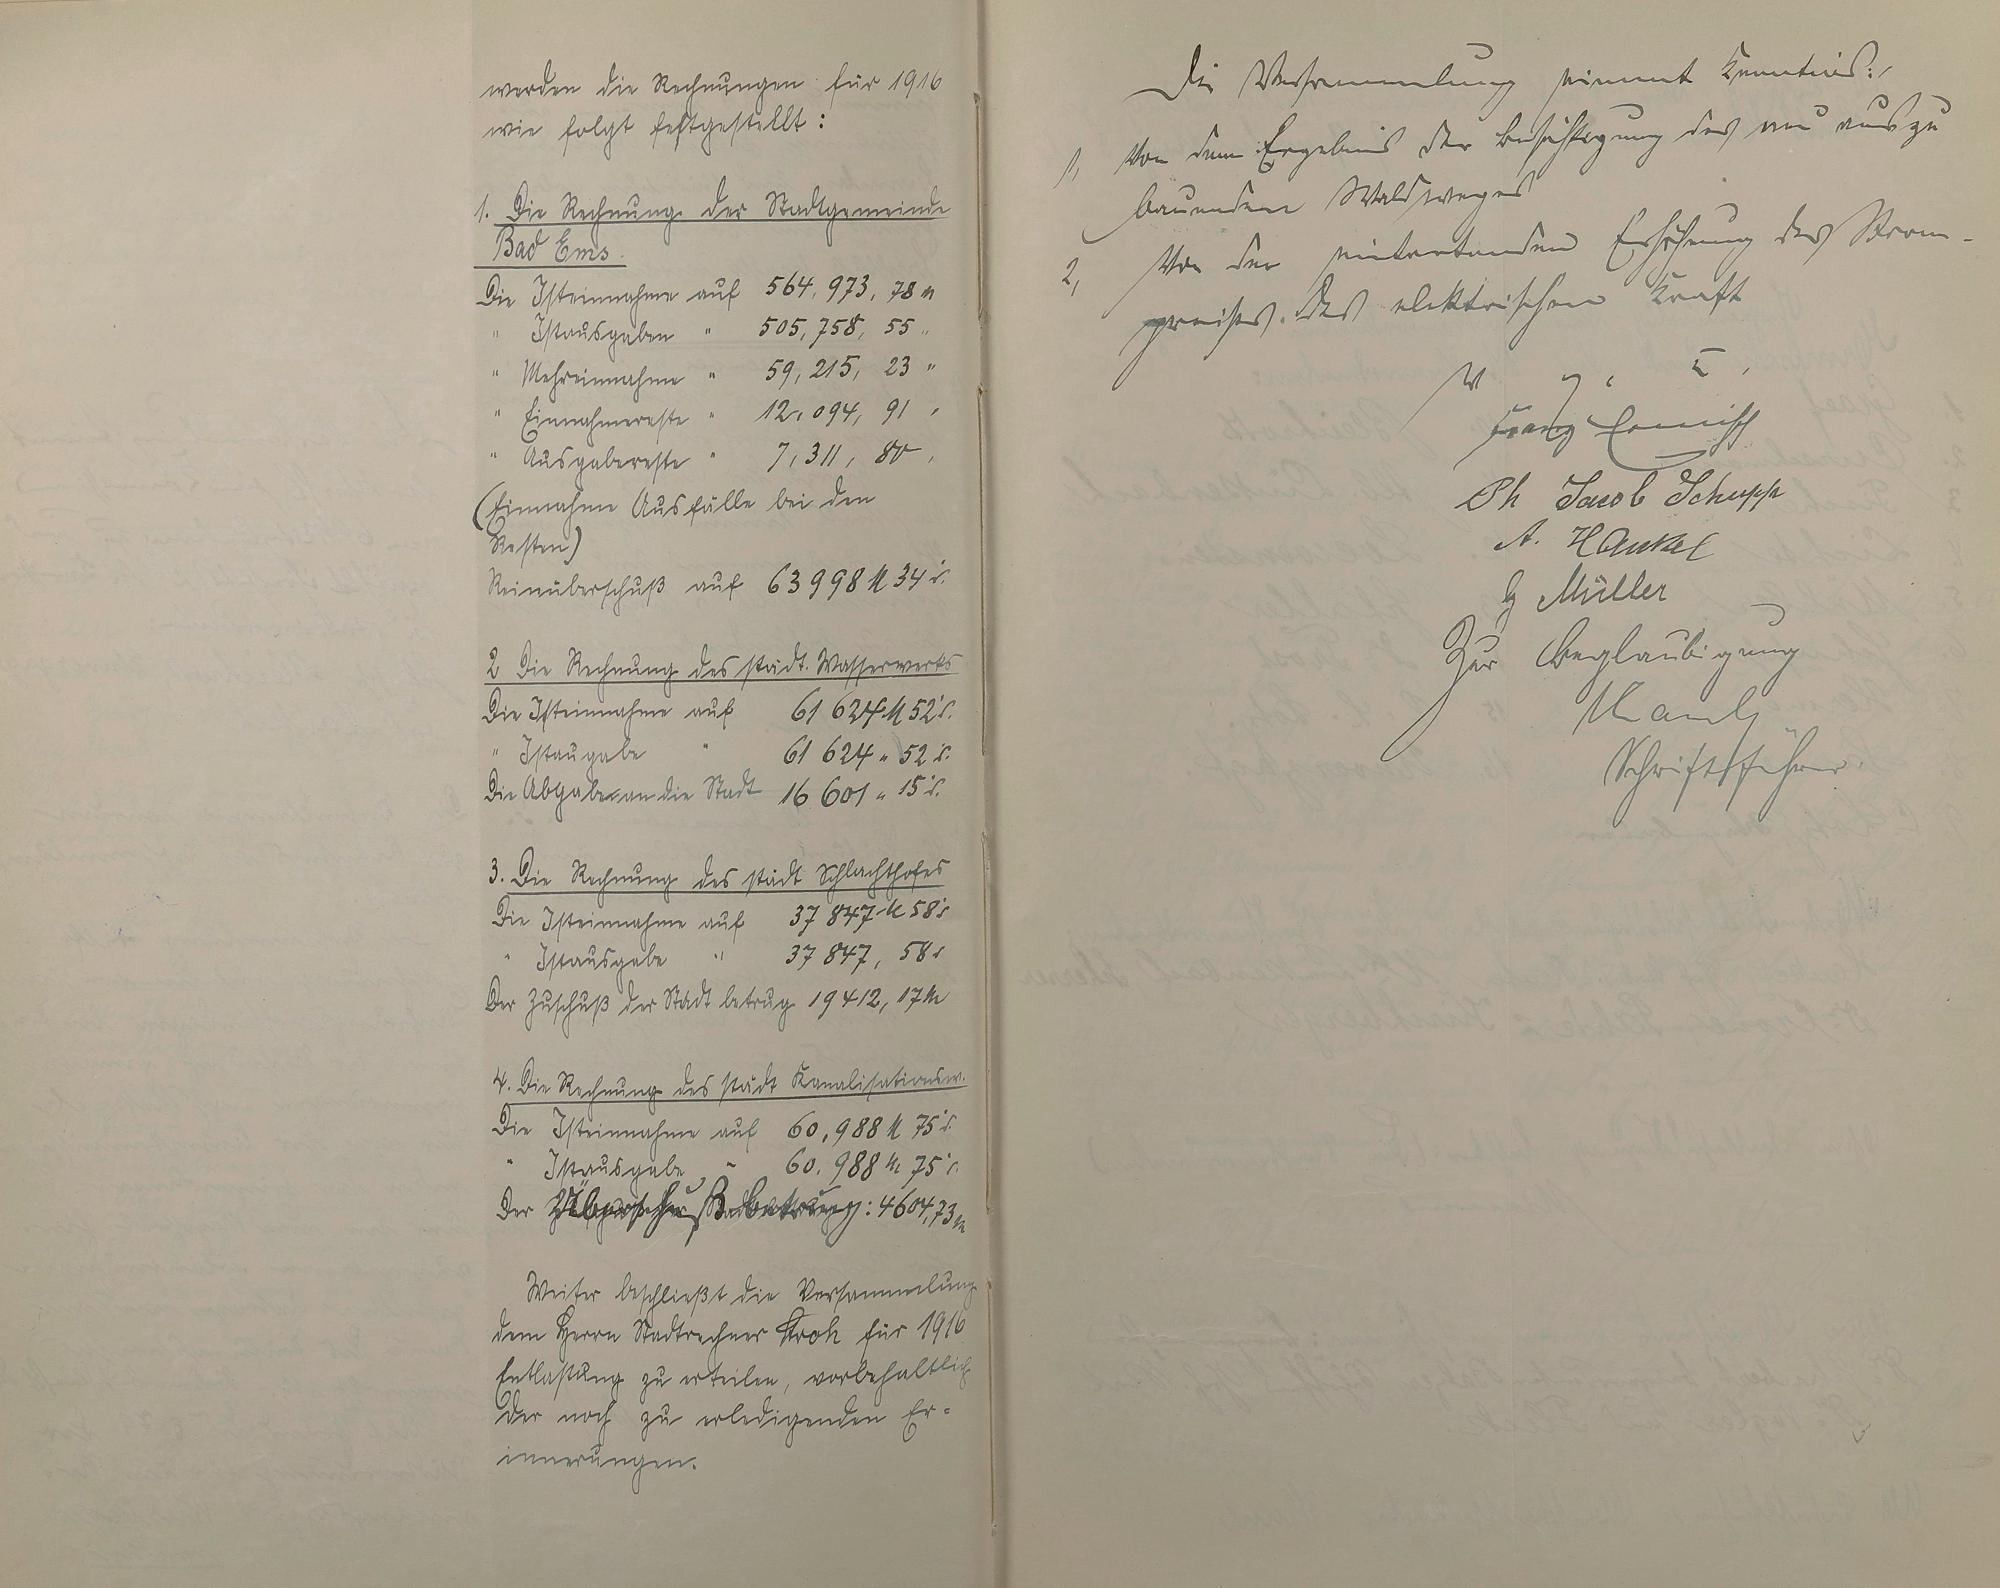 werden die Rechnungen für 1916
wie folgt festgestellt:
1. Die Rechnung der Stadtgemeinde
Bad Ems.
Die Isteinnahme auf 564,973, 78 M
" Istausgaben " 505,758, 55 "
" Mehreinnahme " 59,215, 23 "
" Einnahmereste " 12,094, 91 "
" Ausgabereste " 7,311, 80 "
(Einnahme Ausfälle bei den
Resten)
Reinüberschuß auf 63998 M 34 d.
2 Die Rechnung des städt. Wasserwerks
Die Isteinnahme auf 61 624 M 52 d.
" Istaugabe " 61 624 " 52 d.
Die Abgabe an die Stadt 16 601 " 15 d.
3. Die Rechnung des städt Schlachthofes
Die Isteinnahme auf 37 847 M 58 d
" Istausgabe " 37 847, 58 d
Der Zuschuß der Stadt betrug 19412, 17 M
4. Die Rechnung des städt Kanalisationsw.
Die Isteinnahme auf 60,988 M 75 d.
" Istausgabe " 60,988 M 75 d.
Der Überschuß betrug: 4604,73 M
Weiter beschließt die Versammlung
dem Herrn Stadtrechner Kroh für 1916
Entlastung zu erteilen, vorbehaltlich
der noch zu erledigenden Er-
innerungen.
Die Versammlung nimmt Kenntnis:
1, Von dem Ergebnis der Besichtigung des neu auszu
bauenden Waldweges
2, Von der eintretenden Erhöhung des Strom-
preises des elektrischen Kraft
v g u
Franz Ermisch
Ph Jacob Schupp
A. Hankel
G Müller
Zur Beglaubigung
Schriftführer.